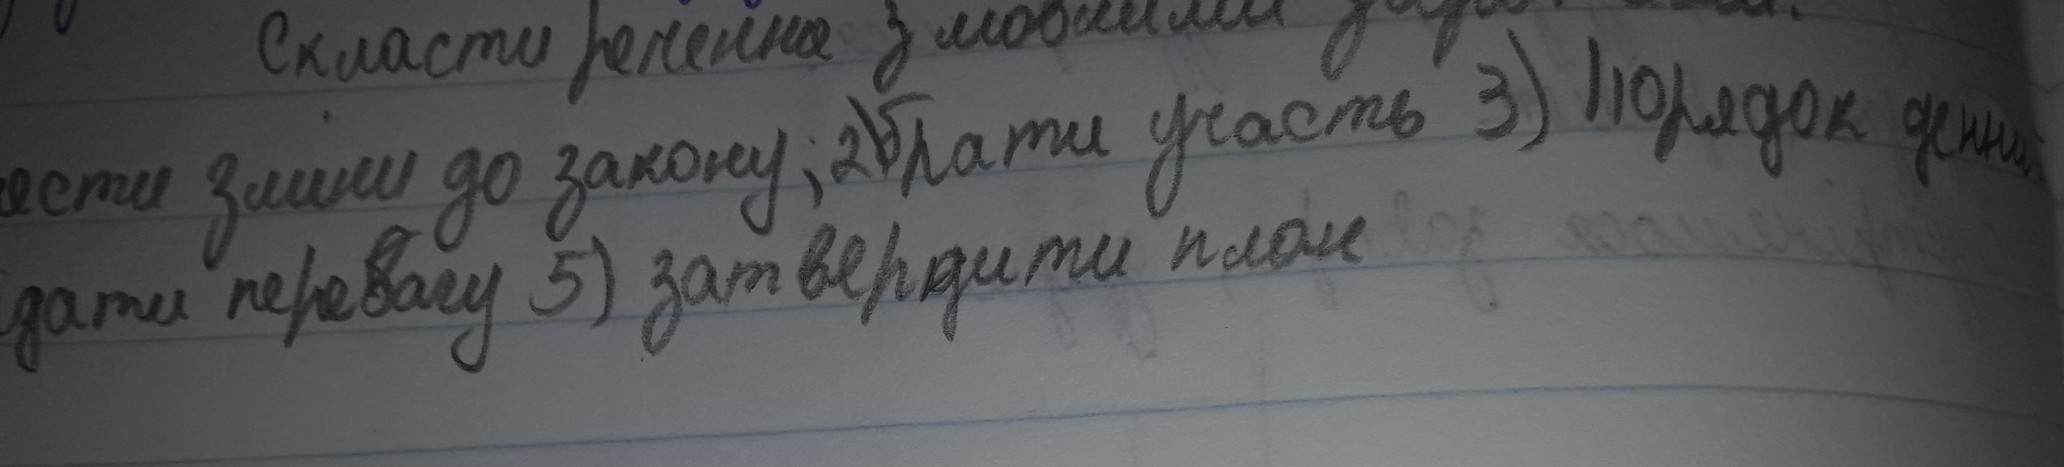 Скласти речення з мовними
ести зміни до закону; 2) брати участь 3) Порядок денний
дати перевагу 5) затвердити план